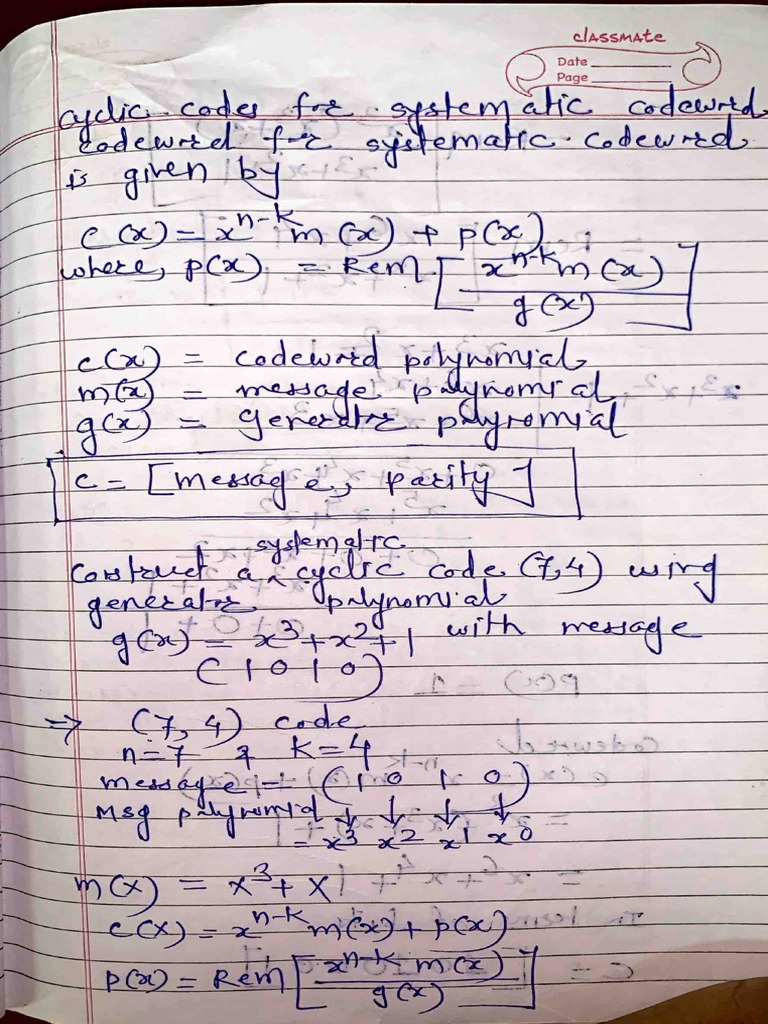 classmate
Date
Page
cyclic codes for systematic codeword
codeword for systematic codeword
is given by
c(x) = x^{n-k} m(x) + p(x)
where, p(x) = Rem [ x^{n-k} m(x) / g(x) ]
c(x) = codeword polynomial
m(x) = message polynomial
g(x) = Generator polynomial
c = [message, parity]
systematic
Construct a ^ cyclic code (7,4) using
generator polynomial
g(x) = x^3+x^2+1 with message
(1 0 1 0)
⇒ (7, 4) code
n=7 & k=4
message = (1 0 1 0)
Msg polynomial ↓ ↓ ↓ ↓
= x^3 x^2 x^1 x^0
m(x) = x^3 + x
c(x) = x^{n-k} m(x) + p(x)
p(x) = Rem [ x^{n-k} m(x) / g(x) ]